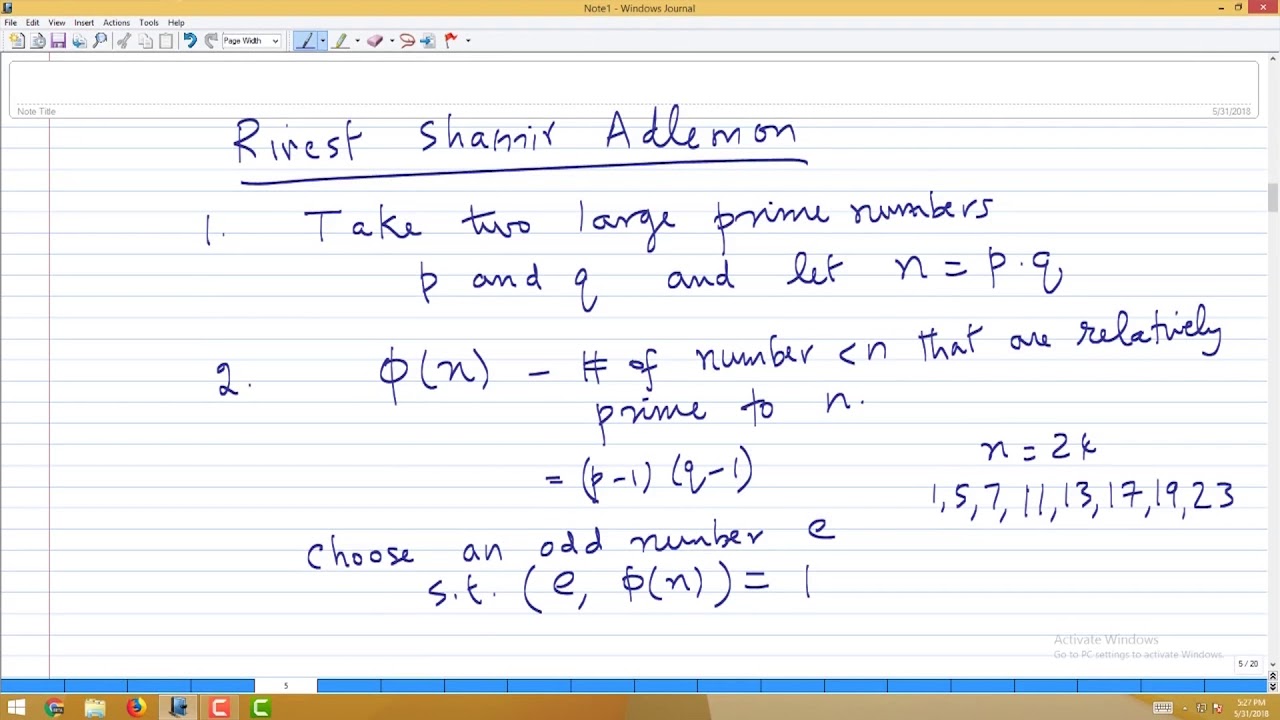 Note1 - Windows Journal
File Edit View Insert Actions Tools Help
Page Width
Note Title
5/31/2018
Rivest Shamir Adlemon
1. Take two large prime numbers
p and q and let n = p.q
2. φ(n) - # of number < n that are relatively
prime to n.
= (p-1) (q-1)
n = 24
1, 5, 7, 11, 13, 17, 19, 23
Choose an odd number e
s.t. (e, φ(n)) = 1
Activate Windows
Go to PC settings to activate Windows.
5 / 20
5
5:27 PM
5/31/2018